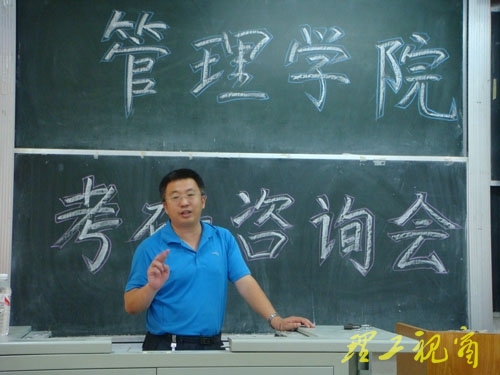 管理学院
考研咨询会
理工视窗